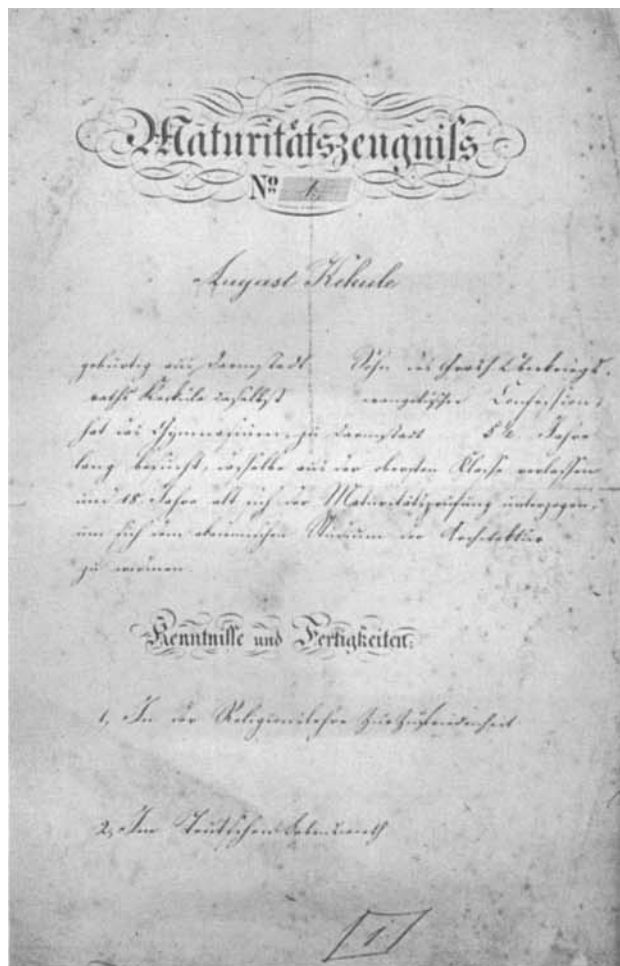 Maturitätszeugniss
No 1.
August Kekule
gebürtig aus Darmstadt Sohn des Oberkriegs-
raths daselbst evangelischer Confession,
hat das Gymnasium zu Darmstadt Jahre
lang besucht, dasselbe aus der obersten Classe verlassen
und 18 Jahre alt sich der Maturitätsprüfung unterzogen,
um sich dem akademischen Studium der Architektur
zu widmen.
Kenntnisse und Fertigkeiten:
1, In der Religionslehre Zur Zufriedenheit
2, Im Teutschen Lobenswerth
1.